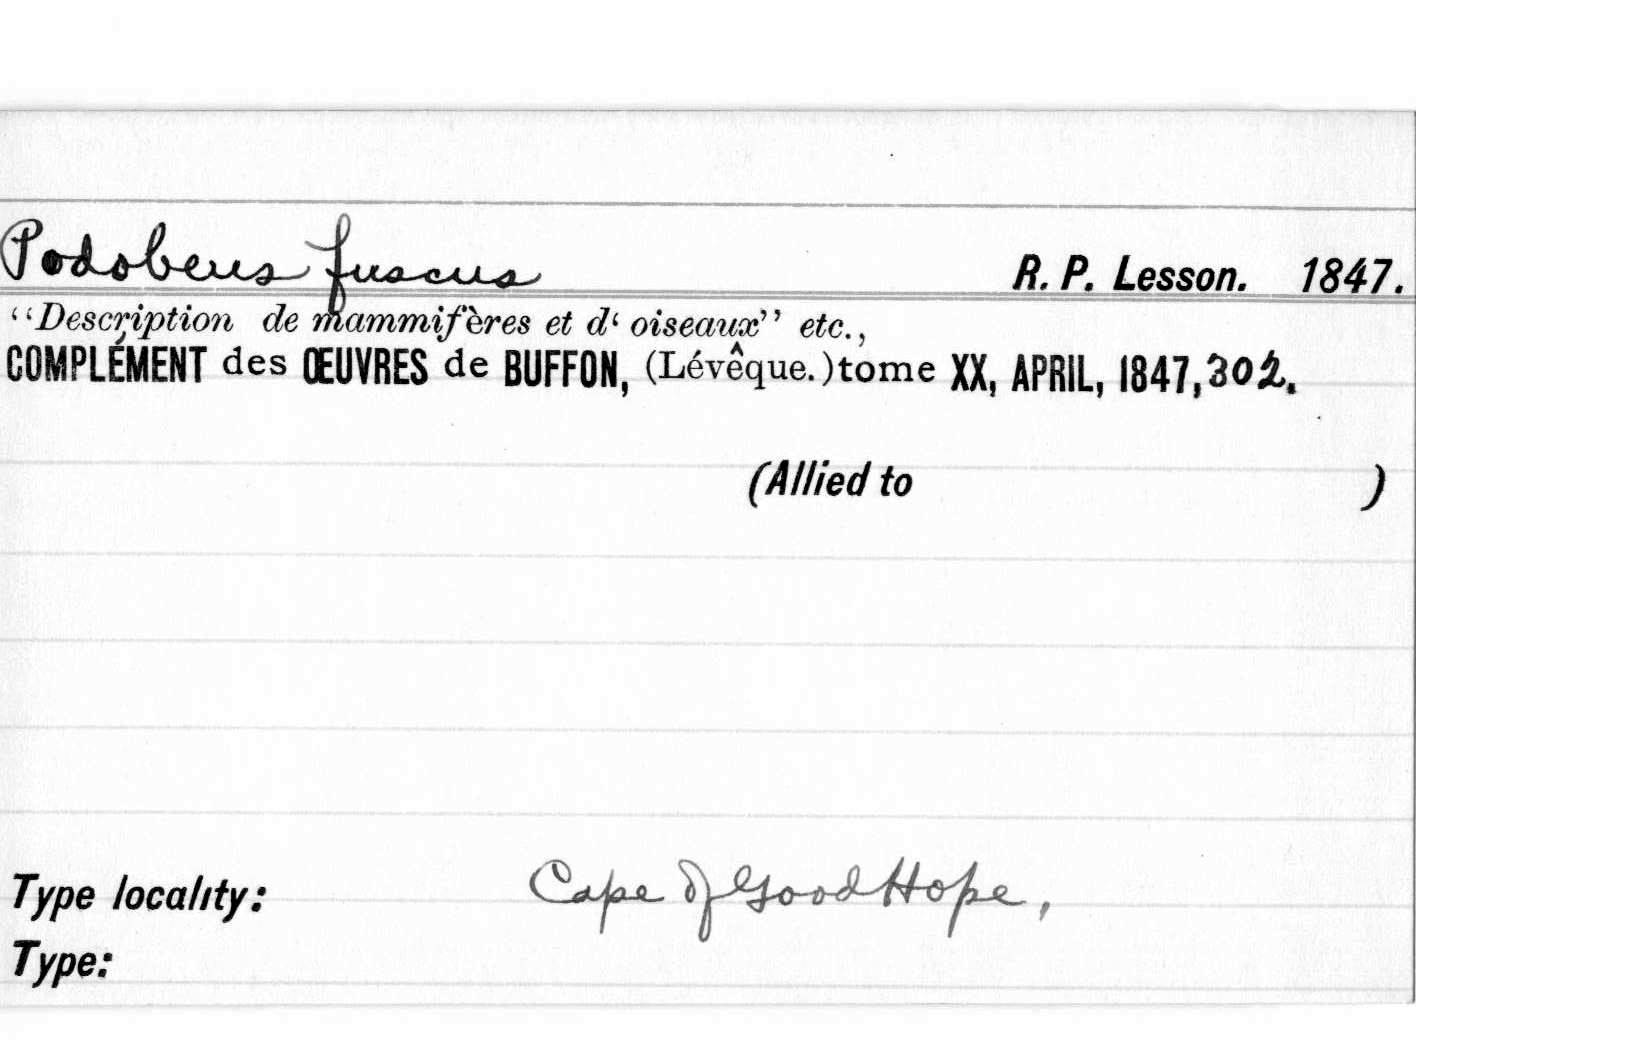 Podobeus fuscus R. P. Lesson. 1847.
“Description de mammifères et d‘ oiseaux” etc.,
COMPLÉMENT des ŒUVRES de BUFFON, (Lévêque.) tome XX, APRIL, 1847, 302.
(Allied to )
Type locality: Cape of Good Hope,
Type: